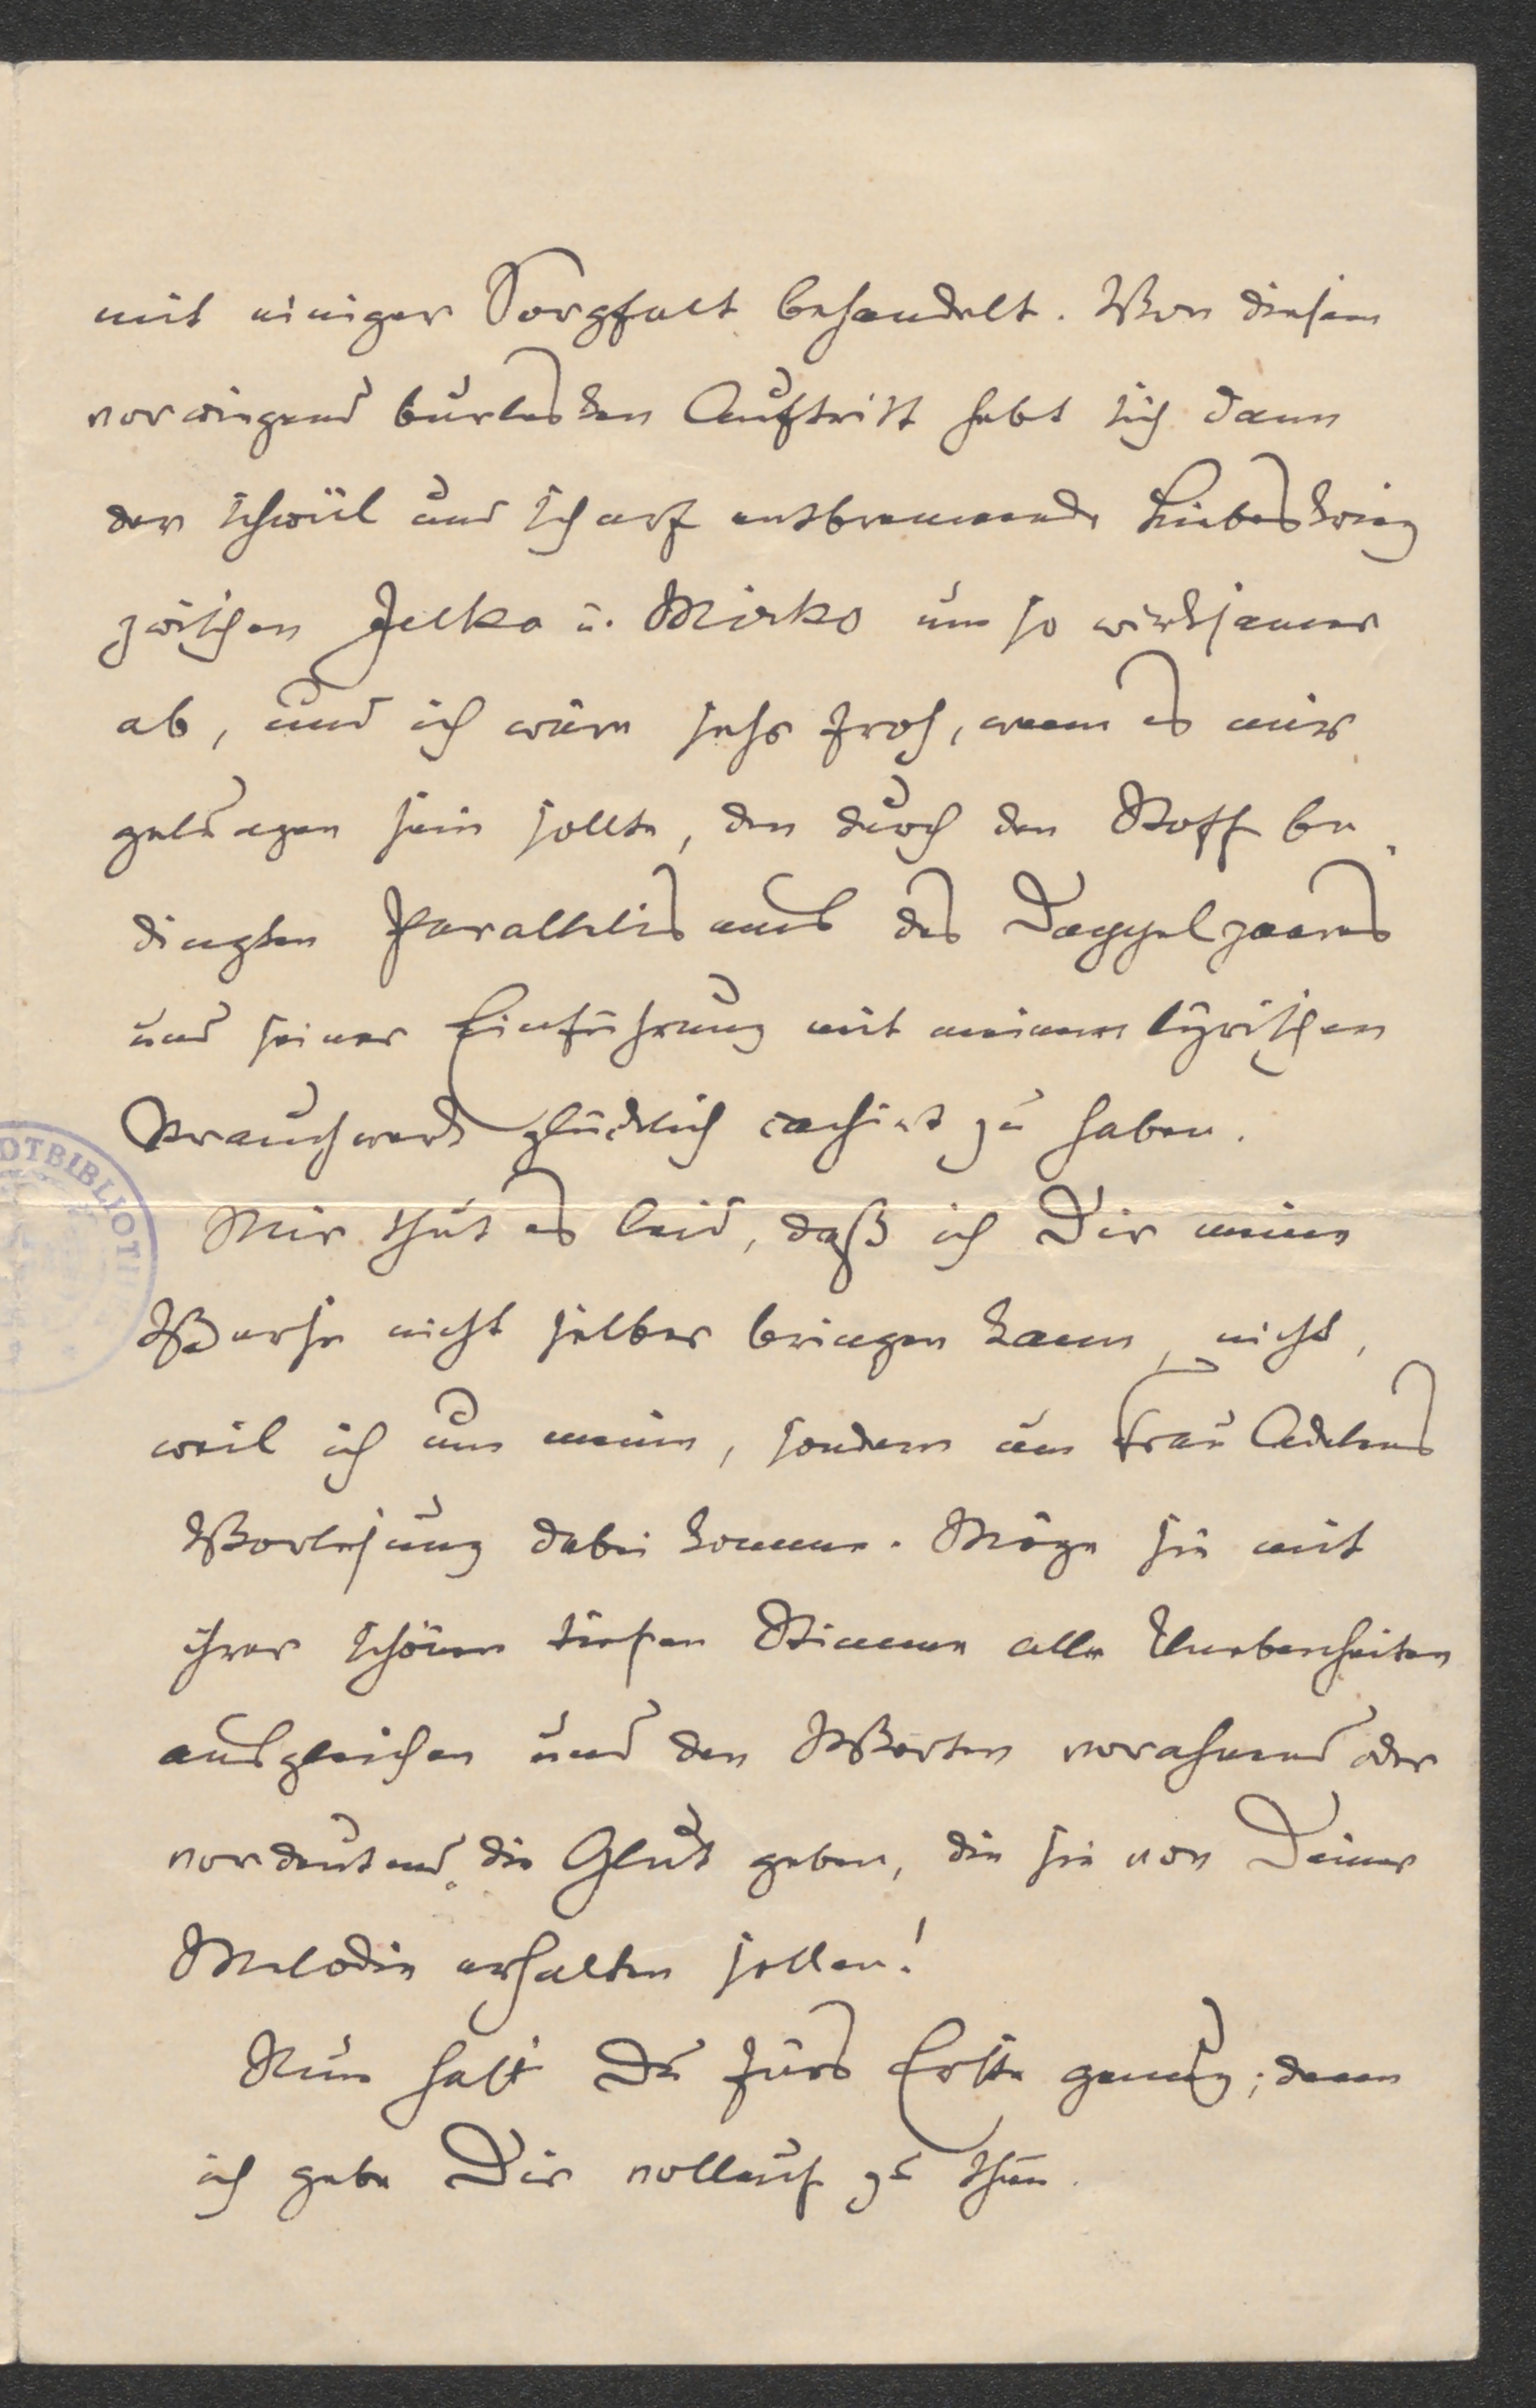 mit einiger Sorgfalt behandelt. Von diesem
vorwiegend burlesken Auftritt hebt sich dann
der schwül und scharf entbrennende Liebeskrieg
zwischen Jelka u. Mirko um so wirksamer
ab, und ich wäre sehr froh, wenn es mir
gelungen sein sollte, den durch den Stoff be-
dingten Parallelismus des Doppelpaares
und seiner Einführung mit meinem lyrischen
Strauchwerk glücklich cachirt zu haben.
Mir thut es leid, daß ich Dir meine
Verse nicht selber bringen kann, nicht,
weil ich um meine, sondern um Frau Adelens
Vorlesung dabei komme. Möge sie mit
ihrer schönen tiefen Stimme alle Unebenheiten
ausgleichen und den Worten vorahnend oder
vordeutend die Glut geben, die sie von Deiner
Melodie erhalten sollen!
Nun hast Du fürs Erste genug; denn
ich gebe Dir vollauf zu thun.
OTBIBLIOTH